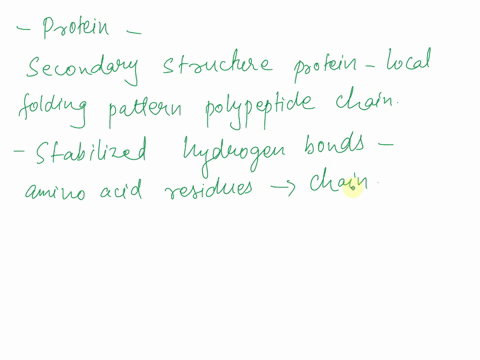 - Protein -
Secondary structure protein - local
folding pattern polypeptide chain.
- Stabilized hydrogen bonds -
amino acid residues → chain.